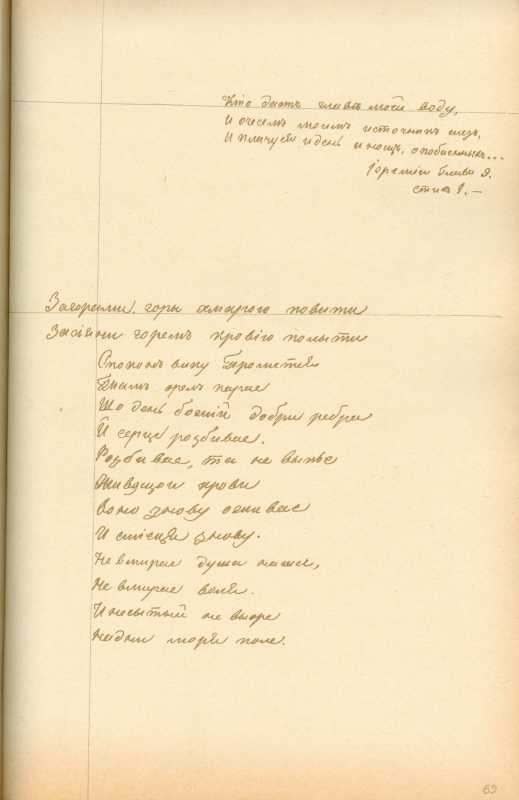 Кто дастъ главѣ моей воду,
И очесемъ моимъ источникъ слезъ,
И плачуся и день и нощъ, о побиенныхъ...
Іереміи Глава 9.
стих 1. —
За горами горы хмарою повити
Засіяни горемъ кровію политы
Споконъ вику Прометея
Тамъ орелъ карае
Що день божій добри ребра
Й серце розбивае.
Розбивае, та не выпье
Живущои крови
Воно знову оживае
И сміеця знову.
Не вмирае душа наша,
Не вмирае воля.
И несытый не выоре
На дни моря поле.
69